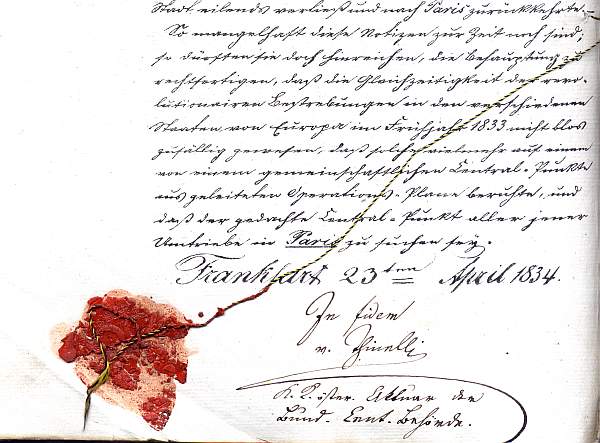 Stadt eilends verließ und nach Paris zurückkehrte.-
So mangelhaft diese Notizen zur Zeit noch sind;
so dürften sie doch hinreichen, die Behauptung zu
rechtfertigen, daß die Gleichzeitigkeit der revo-
lutionairen Bestrebungen in den verschiedenen
Staaten von Europa im Frühjahr 1833 nicht blos
zufällig gewesen, daß solche vielmehr auf einem
von einem gemeinschaftlichen Central-Punkte
aus geleiteten Operations-Plane beruhte, und
daß der gedachte Central-Punkt aller jener
Umtriebe in Paris zu suchen sey.
Frankfurt 23ten April 1834.
In fidem
v.
K. K. öster. Aktuar der
Bund. Cent. Behörde.